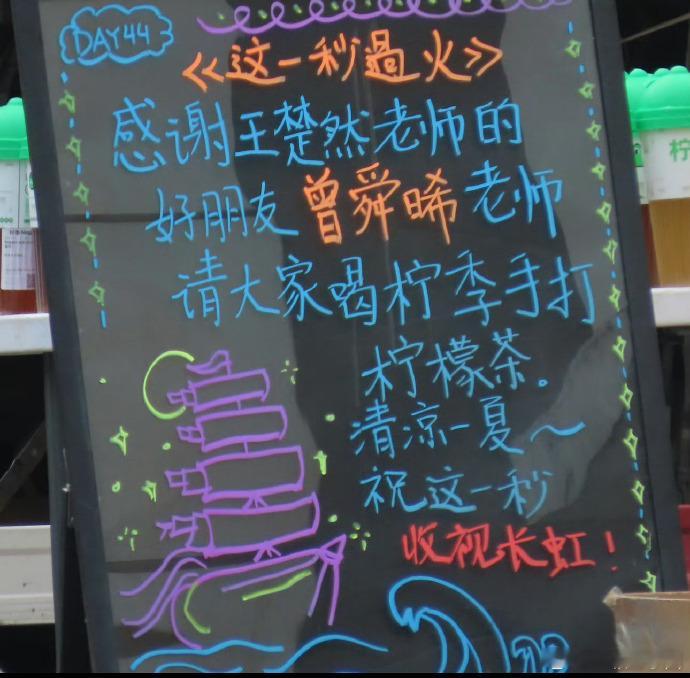 DAY44
《这一秒過火》
感谢王楚然老师的
好朋友曾舜晞老师
请大家喝柠季手打
柠檬茶。
清凉一夏～
祝这一秒
收视长虹！
柠